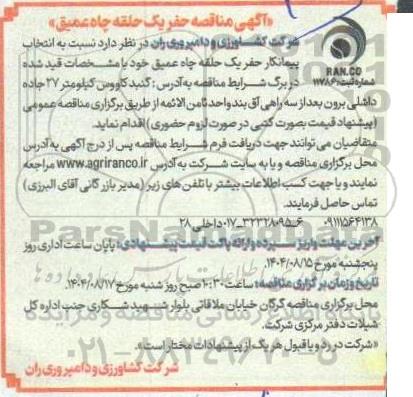 «آگهی مناقصه حفر یک حلقه چاه عمیق»
شرکت کشاورزی و دامپروری ران در نظر دارد نسبت به انتخاب
پیمانکار حفر یک حلقه چاه عمیق خود با مشخصات قید شده
RAN.CO
در برگ شرایط مناقصه به آدرس: گنبدکاووس کیلومتر ۲۷ جاده
شماره ثبت: ۱۱۷۸۶
داشلی برون بعد از سه راهی آق بند واحد ثامن الائمه از طریق برگزاری مناقصه عمومی
(پیشنهاد قیمت بصورت کتبی در صورت لزوم حضوری) اقدام نماید.
متقاضیان می توانند جهت دریافت فرم شرایط مناقصه پس از درج آگهی به آدرس
محل برگزاری مناقصه و یا به سایت شرکت به آدرس www.agriranco.ir مراجعه
نمایند و یا جهت کسب اطلاعات بیشتر با تلفن های زیر (مدیر بازرگانی آقای البرزی)
تماس حاصل فرمایند.
۰۹۱۱۱۵۶۴۱۳۸ ۶-۰۱۷-۳۲۳۲۸۰۹۵ داخلی ۲۸
آخرین مهلت واریز سپرده و ارائه پاکت قیمت پیشنهادی: پایان ساعت اداری روز
پنجشنبه مورخ ۱۴۰۴/۰۸/۱۵.
تاریخ و زمان برگزاری مناقصه: ساعت ۱۰:۳۰ صبح روز شنبه مورخ ۱۴۰۴/۰۸/۱۷.
محل برگزاری مناقصه گرگان خیابان ملاقاتی بلوار شهید شکاری جنب اداره کل
شیلات دفتر مرکزی شرکت.
«شرکت در رد و یا قبول هر یک از پیشنهادات مختار است».
شرکت کشاورزی و دامپروری ران
ParsNamadData
۰۲۱-۸۸۳۴۹۶۷۰-۵